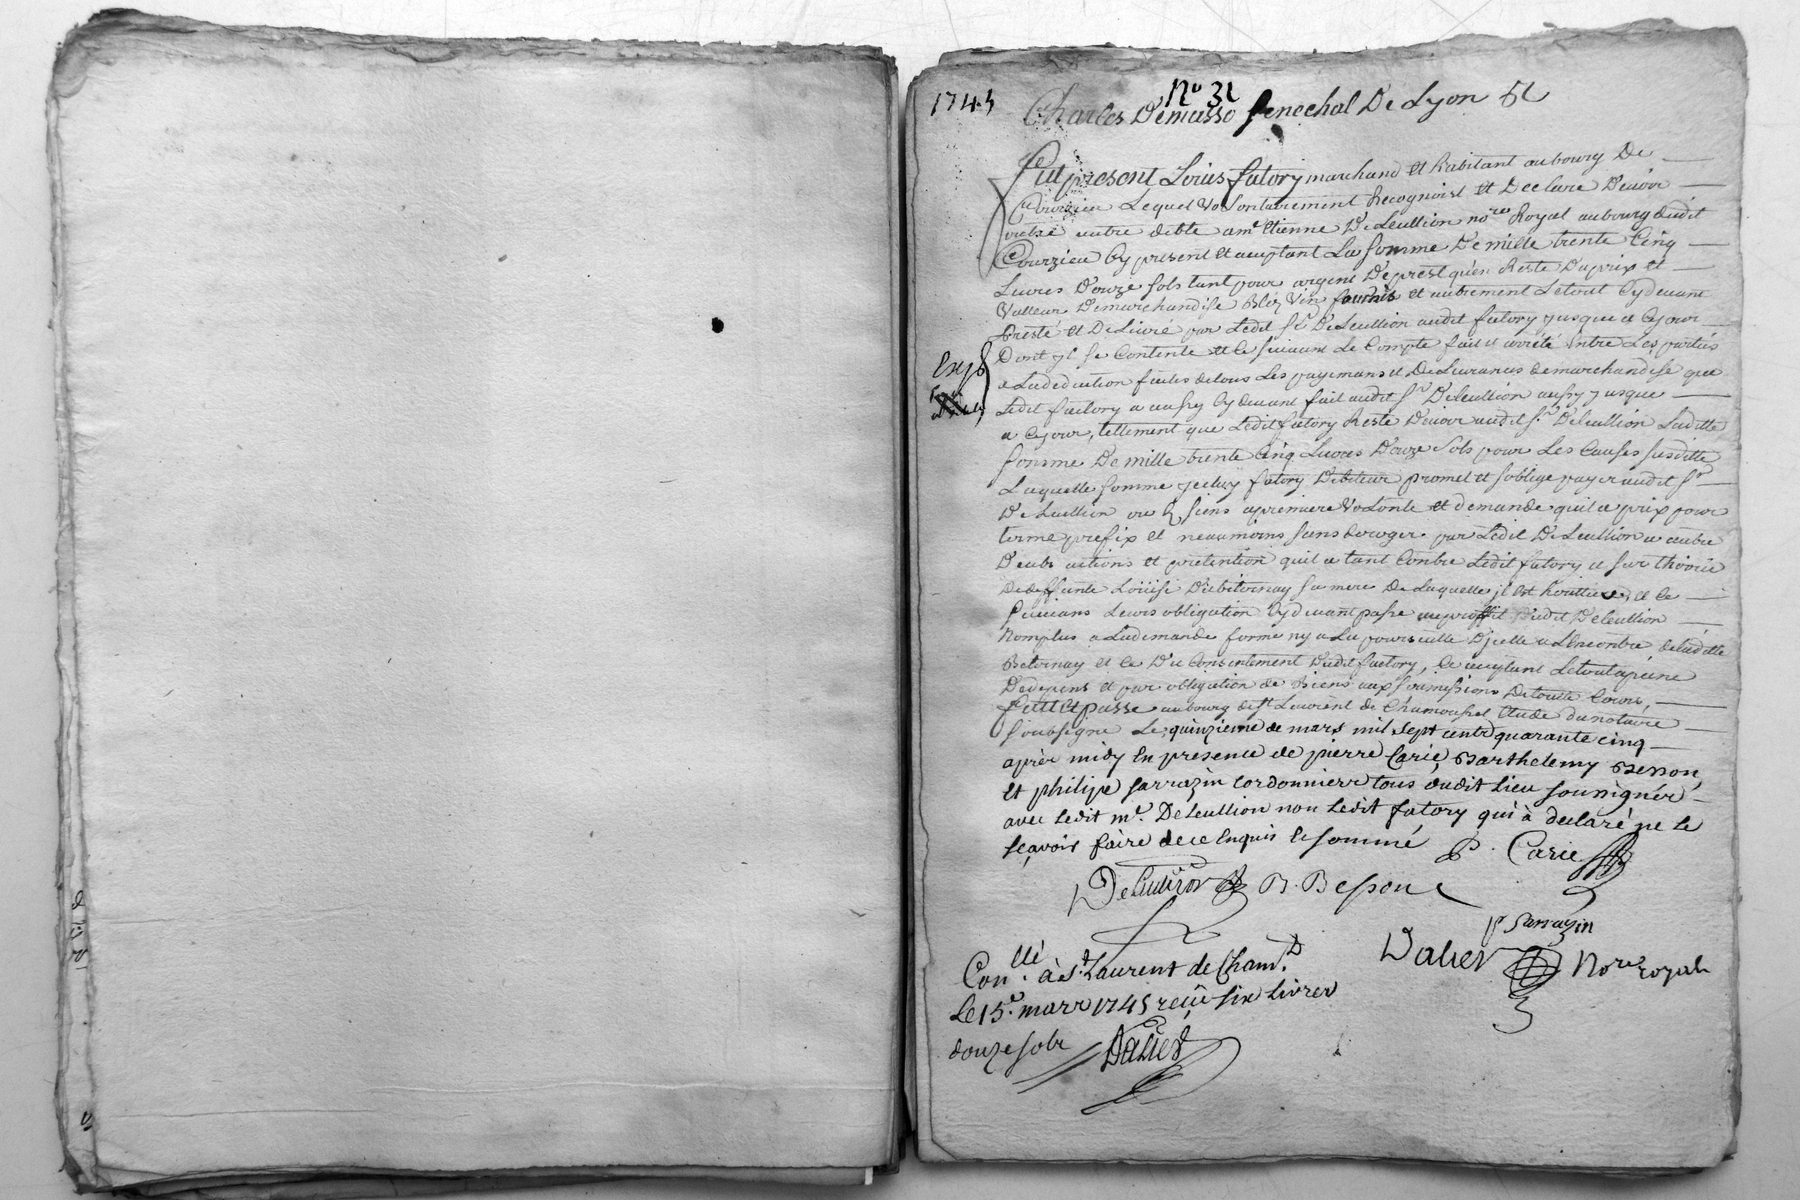 1745
N° 32
Charles Demasso senechal De Lyon &c
Fut present Louis fatory marchand et habitant au bourg De
Courzieu Lequel Volontairement Recognoist et Declare Devoir
outre autre debte a me Etienne DeLeullion nore Royal au bourg dudit
Courzieu Cy present et aceptant La somme De mille trente Cinq
Livres Douze sols tant pour argent De prest qu'en Reste Du prix et
Valleur De marchandise Bléz Vin fournis et autrement Le tout Cydevant
Presté et Delivré par Ledit Sr DeLeullion audit fatory jusque a Cejour
Dont yl se Contente et Ce suivant Le Compte fait et arrété Entre Les parties
a La deduction faites de tous Les payemans et De Livrances de marchandise que
Ledit fatory a aussy Cy devant fait audit Sr Deleullion aussy jusque
a Cejour, tellement que Ledit fatory Reste Devoir audit Sr Deleullion Laditte
somme De mille trente Cinq Livres Douze Sols pour Les Causes susditte
Laquelle somme yceluy fatory Debiteur promet et soblige payer audit Sr
DeLeullion ou siens a premiere Volonté et demande quil a prix pour
terme prefix et neaumoins sans deroger par Ledit DeLeullion a autre
Deubt actions et pretention quil a tant Contre Ledit fatory et sur Lhoirie
De deffunte Loüise Debiternay sa mere De Laquelle jl Est herittier et Ce
suivans Leurs obligation Cydevant passe au proffit Dudit Deleullion
Nomplus a La demande formé ny a La poursuitte Djcelle a Lencontre de laditte
Beternay et Ce Du Consentement Dudit fatory, Ce aceptant Le tout apeine
De depens et par obligation de Biens aux soumissions De toutte Cours,
fait Et passé au bourg de St Laurent de Chamousset Etude du notaire
soussigné Le quinzieme de mars mil sept cents quarante cinq
après midy En presence de pierre Carie, Barthelemy Besson,
et philipe sarrazin cordonnier tous dudit lieu soussignéz
avec ledit me. Deleullion non ledit fatory qui à declaré ne le
sçavoir faire de ce Enquis et sommé P. Carie
Exp
DeLeullion B. Besson
p Sarrazin
Dalier Nore royal
Conllé. à St Laurent de Cham.
Le 15e. mars 1745 reçu six livres
douze sols Dalier